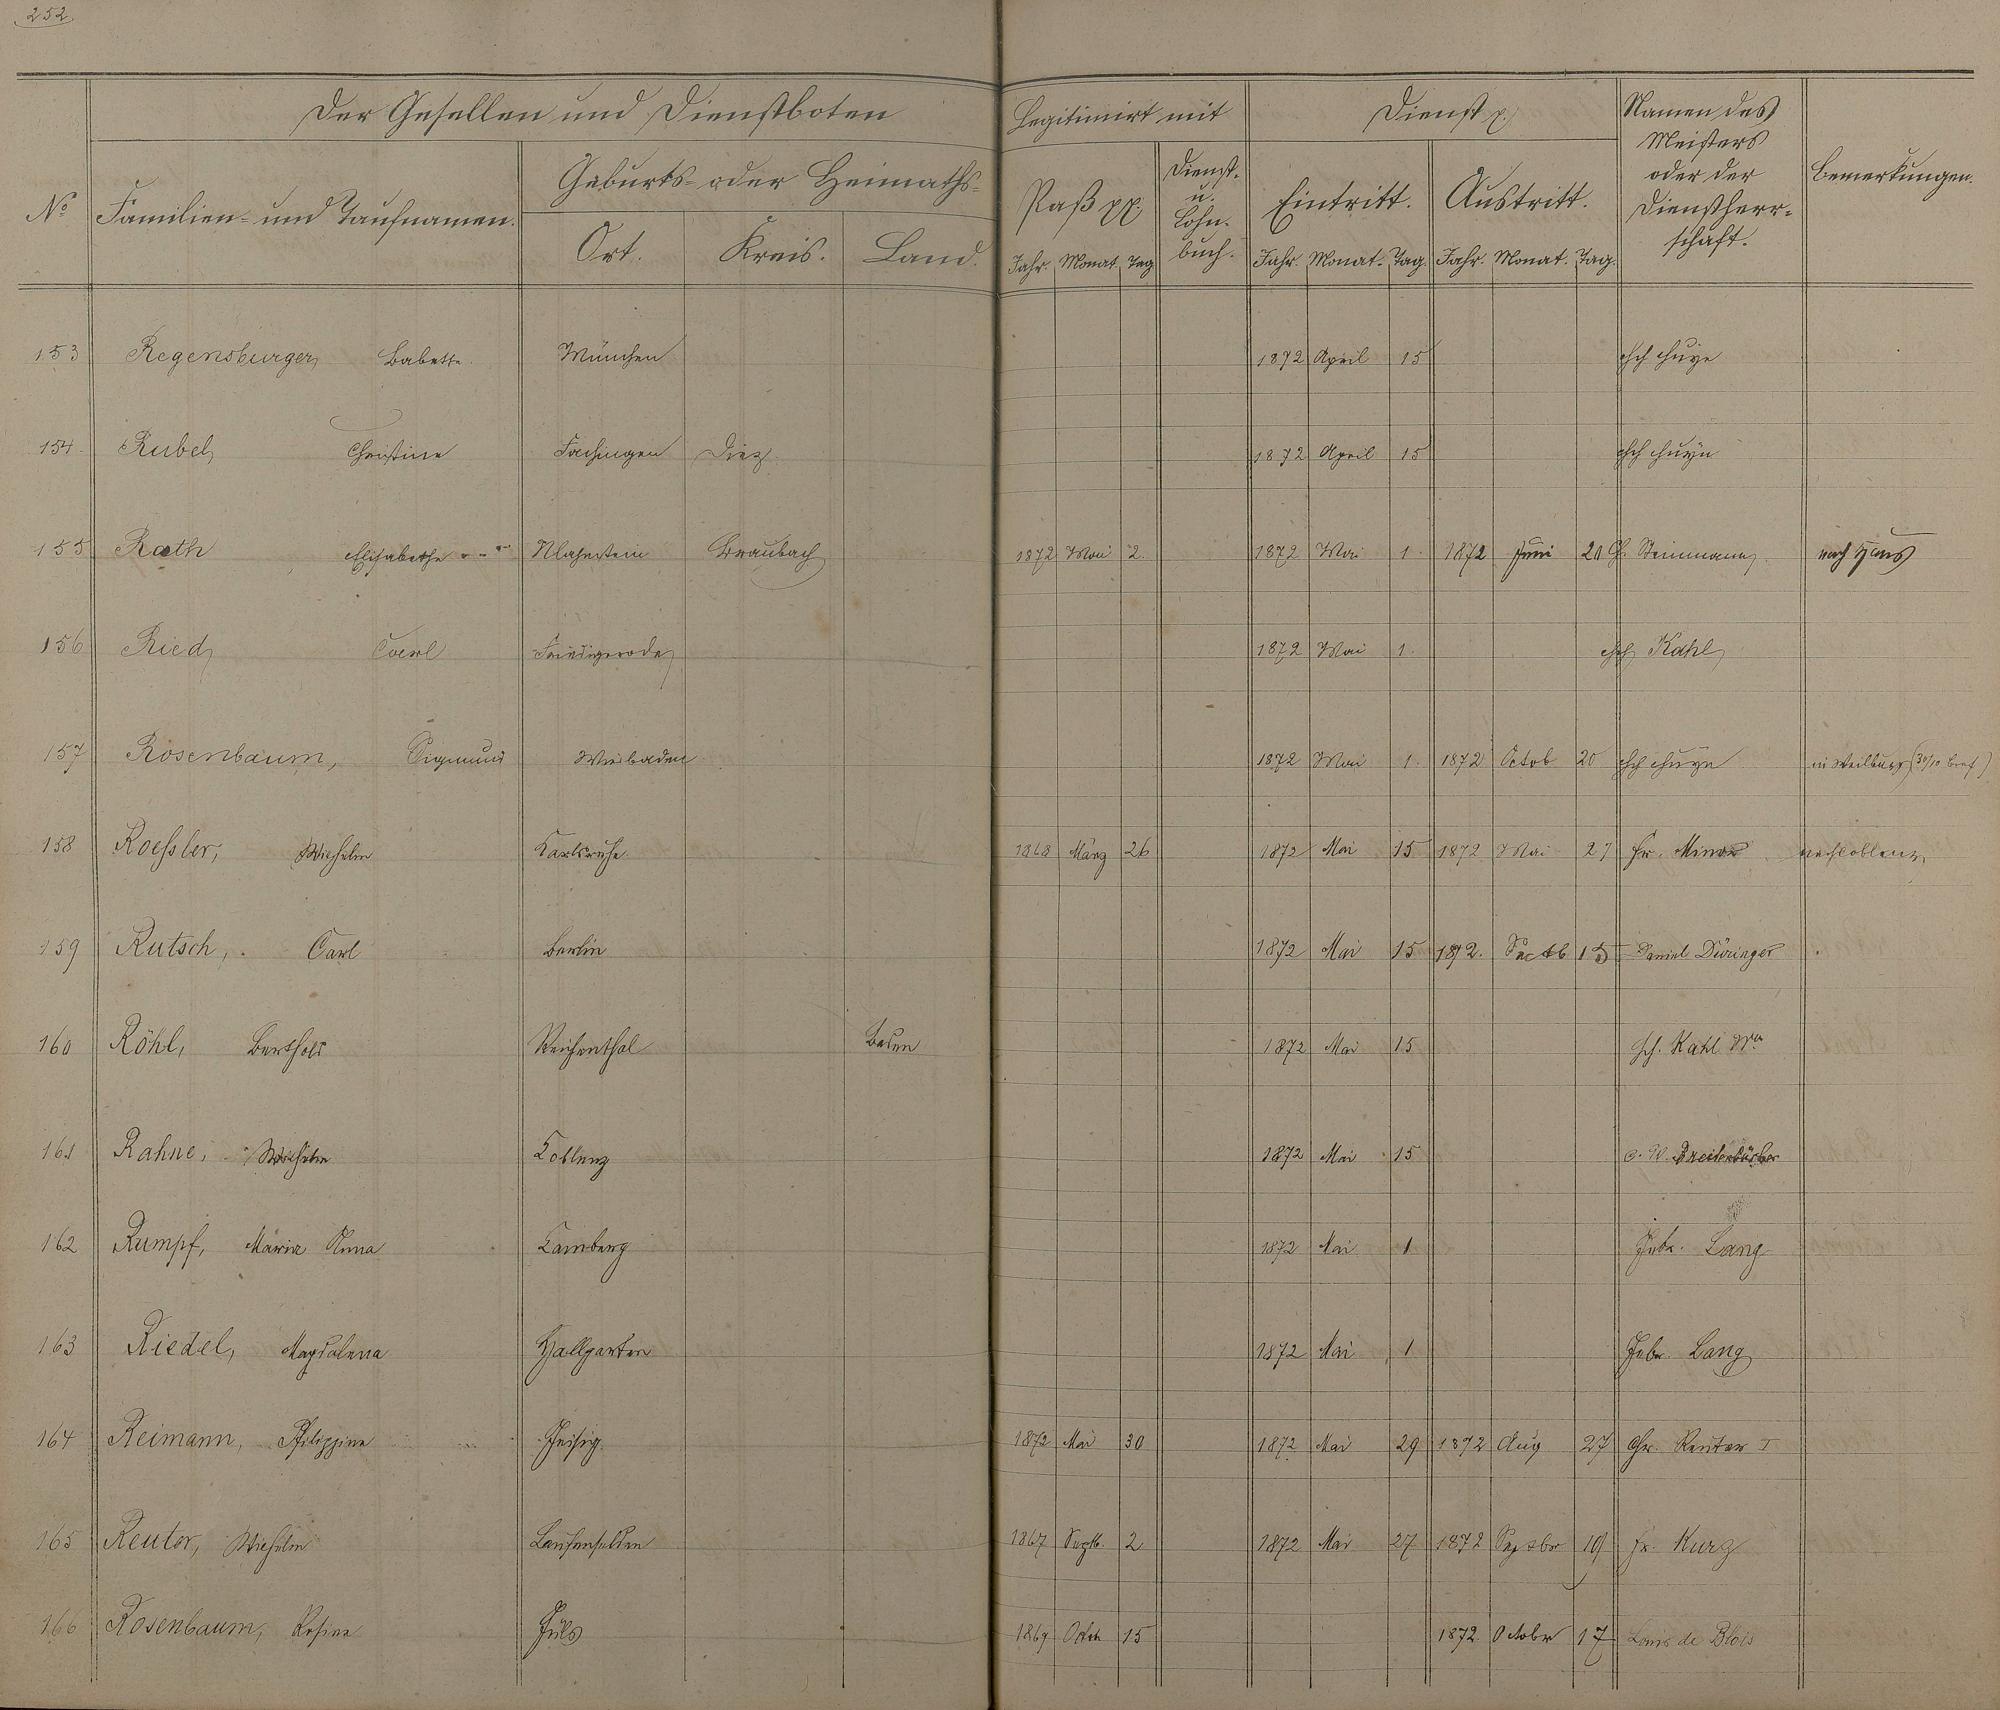 252
Der Gesellen und Dienstboten
Legitimirt mit
Dienst p.
Namen des Meisters oder der Dienstherrschaft.
Bemerkungen.
No
Familien- und Taufnamen.
Geburts- oder Heimaths-
Ort. Kreis. Land.
Paß pp.
Dienst- u. Lohn-buch.
Eintritt. Austritt.
Jahr. Monat Tag Jahr. Monat. Tag. Jahr. Monat. Tag.
153 Regensburger, Babette. München 1872 April 15
154 Rubel, Christine Fachingen Diez 1872 April 15
155 Rath Elisabethe Braubach 1872 Mai 2. 1872 Mai 1. 1872 Juni 20 Steinmann nach Haus
156 Ried Carl 1872 Mai 1. Kahl
157 Rosenbaum, Sigmund Wiesbaden 1872 Mai 1. 1872 Octob 20 in Weilburg
158 Roessler, Wilhelm Karlsruhe 1868 März 26 1872 Mai 15 1872 Mai 27 Fr. Minor nach Coblenz
159 Rutsch, Carl Berlin 1872 Mai 15 1872. 15 Daniel Düringer
160 Röhl, Berthold Reichenthal Baden 1872 Mai 15 Kahl Wwe
161 Rahne, Wilhelm Coblenz 1872 Mai 15
162 Rumpf, Maria Anna Camberg 1872 Mai 1 Gebr. Lang
163 Riedel, Magdalena Hallgarten 1872 Mai 1 Gebr. Lang
164 Reimann, Philippine 1872 Mai 30 1872 Mai 29 1872 Aug 27 Chr. Reuter I
165 Reuter, Wilhelm Laufenselden 1867 Septb. 2 1872 Mai 27 1872 19 Fr. Kurz
166 Rosenbaum, Rosina 1869 15 1872. October 17 Louis de Blois